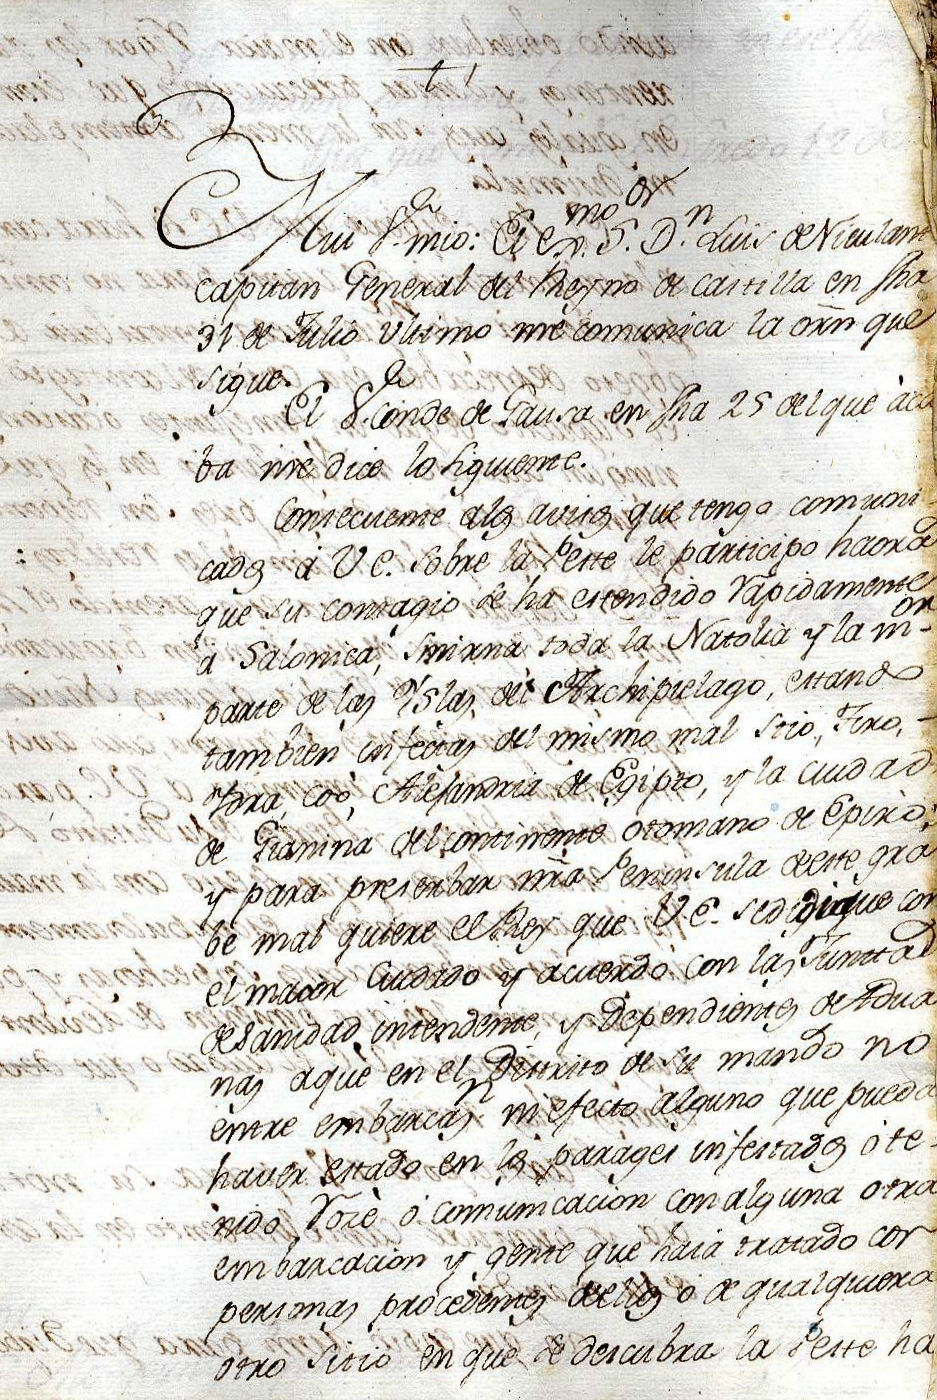 †
Mui S.or mio: El Ex.mo S.or D.n Luis de Niculant
capitan General del Reyno de castilla en fha
31 de Julio ultimo me comunica la orñ que
sigue.
El S.or Conde de Gausa en fha 25 del que àca
ba me dice lo siguiente.
Consecuente alos avisos que tengo comuni-
cados à V E. sobre la Peste le participo haora
que su contagio se ha estendido Rapidamente
à Salonica, Smirna toda la Natolia y la m.or
parte de las Yslas del Archipielago, estando
tambien infectas del mismo mal Scio, Tiro,
Coò, Alejandria de Egipto, y la ciudad
de Gianina del continente otomano de Epiro;
y para preserbar nrã Peninsula deeste gra
be mal quiere el Rey que V E. se dedique con
el maior Cuidado y acuerdo con las Juntas
de Sanidad, intendente, y Dependientes de Adua
nas àque en el Distrito de su mando no
entre embarcas.n ni efecto alguno que pueda
haver estado en los parages infestados ò te-
nido Roze ò comunicacion con alguna otra
embarcacion y gente que haia tratado con
personas procedentes deellos ò de qualquiera
otro sitio en que se descubra la Peste ha